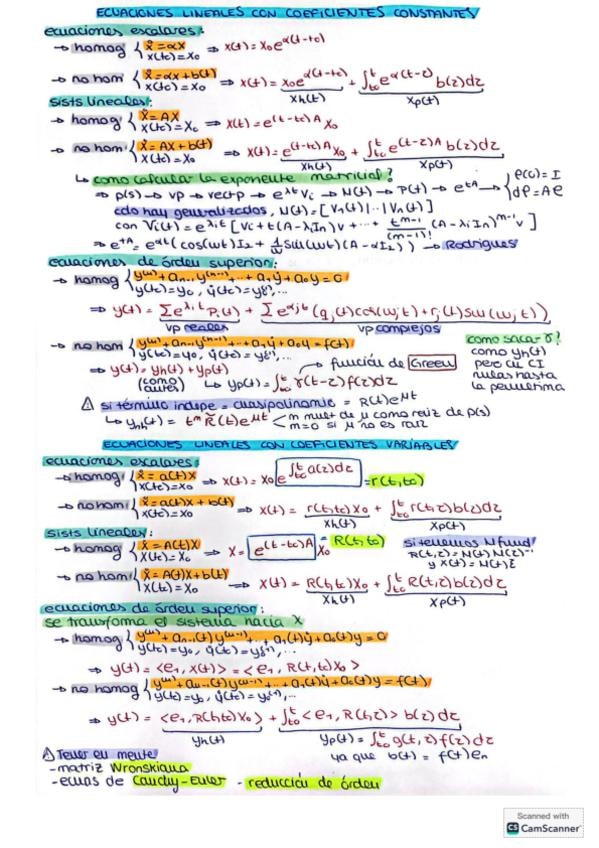 ECUACIONES LINEALES CON COEFICIENTES CONSTANTES
ecuaciones escalares:
→ homog { ẋ=αx ; x(t₀)=x₀ ⇒ x(t)=x₀e^{α(t-t₀)}
→ no hom { ẋ=αx+b(t) ; x(t₀)=x₀ ⇒ x(t)= x₀e^{α(t-t₀)} + ∫_{t₀}^{t} e^{α(t-z)} b(z)dz
x_h(t) x_p(t)
sists lineales:
→ homog { ẋ=AX ; x(t₀)=X₀ ⇒ x(t)=e^{(t-t₀)A} X₀
→ no hom { ẋ=AX+b(t) ; x(t₀)=X₀ ⇒ x(t)= e^{(t-t₀)A} X₀ + ∫_{t₀}^{t} e^{(t-z)A} b(z)dz
x_h(t) x_p(t)
↳ como calcular la exponente matricial?
⇒ p(s) → vp → vectp → e^{λt} Vᵢ → M(t) → P(t) → e^{tA} →
cdo hay generalizados, M(t)=[V₁(t)|..|Vₙ(t)]
con Vᵢ(t)=e^{λᵢt} [Vᵢ+t(A-λᵢIₙ)v+...+ t^{m-1}/(m-1)! (A-λᵢIₙ)^{m-1}v]
⇒ e^{tA}= e^{αt}(cos(ωt)I₂+ 1/ω sin(ωt)(A-αI₂)) → Rodrigues
ecuaciones de órden superior:
→ homog { y⁽ⁿ⁾+aₙ₋₁y⁽ⁿ⁻¹⁾+...+a₁ẏ+a₀y=0 ; y(t₀)=y₀, ẏ(t₀)=y₀¹,...
⇒ y(t)= Σe^{λᵢt}Pᵢ(t) + Σe^{αⱼt}(qⱼ(t)cos(ωⱼt)+rⱼ(t)sin(ωⱼt))
vp reales vp complejos
→ no hom { y⁽ⁿ⁾+aₙ₋₁y⁽ⁿ⁻¹⁾+...+a₁ẏ+a₀y=f(t) ; y(t₀)=y₀, ẏ(t₀)=y₀¹,...
como sacar r?
como y_h(t)
pero cu CI
nulas hasta
la penúltima
⇒ y(t)= y_h(t)+y_p(t) → función de Green
(como antes) ↳ y_p(t)=∫_{t₀}^{t} r(t-z)f(z)dz
⚠ si término indepe = cuasipolinomio = R(t)e^{μt}
↳ y_{nh}(t)= t^m R̃(t)e^{μt} < m mult de μ como raiz de p(s)
m=0 si μ no es raiz
ECUACIONES LINEALES CON COEFICIENTES VARIABLES
ecuaciones escalares:
→ homog { ẋ=a(t)x ; x(t₀)=x₀ ⇒ x(t)= x₀ e^{∫_{t₀}^{t} a(z)dz} =r(t,t₀)
→ no hom { ẋ=a(t)x+b(t) ; x(t₀)=x₀ ⇒ x(t)= r(t,t₀)x₀ + ∫_{t₀}^{t} r(t,z)b(z)dz
x_h(t) x_p(t)
sists lineales:
→ homog { ẋ=A(t)X ; x(t₀)=X₀ ⇒ X= e^{(t-t₀)A} X₀ = R(t,t₀)
si tenemos M fund
R(t,z)=M(t)M(z)⁻¹
→ no hom { ẋ=A(t)X+b(t) ; x(t₀)=X₀ ⇒ x(t)= R(t,t₀)X₀ + ∫_{t₀}^{t} R(t,z)b(z)dz
x_h(t) x_p(t)
ecuaciones de órden superior:
se transforma el sistema hacia X
→ homog { y⁽ⁿ⁾+aₙ₋₁(t)y⁽ⁿ⁻¹⁾+...+a₁(t)ẏ+a₀(t)y=0 ; y(t₀)=y₀, ẏ(t₀)=y₀¹,...
⇒ y(t)= <e₁, x(t)> = <e₁, R(t,t₀)X₀>
→ no homog { y⁽ⁿ⁾+aₙ₋₁(t)y⁽ⁿ⁻¹⁾+...+a₁(t)ẏ+a₀(t)y=f(t) ; y(t₀)=y₀, ẏ(t₀)=y₀¹,...
⇒ y(t)= <e₁, R(t,t₀)X₀> + ∫_{t₀}^{t} <e₁, R(t,z)> b(z)dz
y_h(t) y_p(t)=∫_{t₀}^{t} g(t,z)f(z)dz
ya que b(t)= f(t)eₙ
⚠ Tener en mente
-matriz Wronskiana
-ecuas de Cauchy-Euler - reducción de órden
Scanned with
CS CamScanner